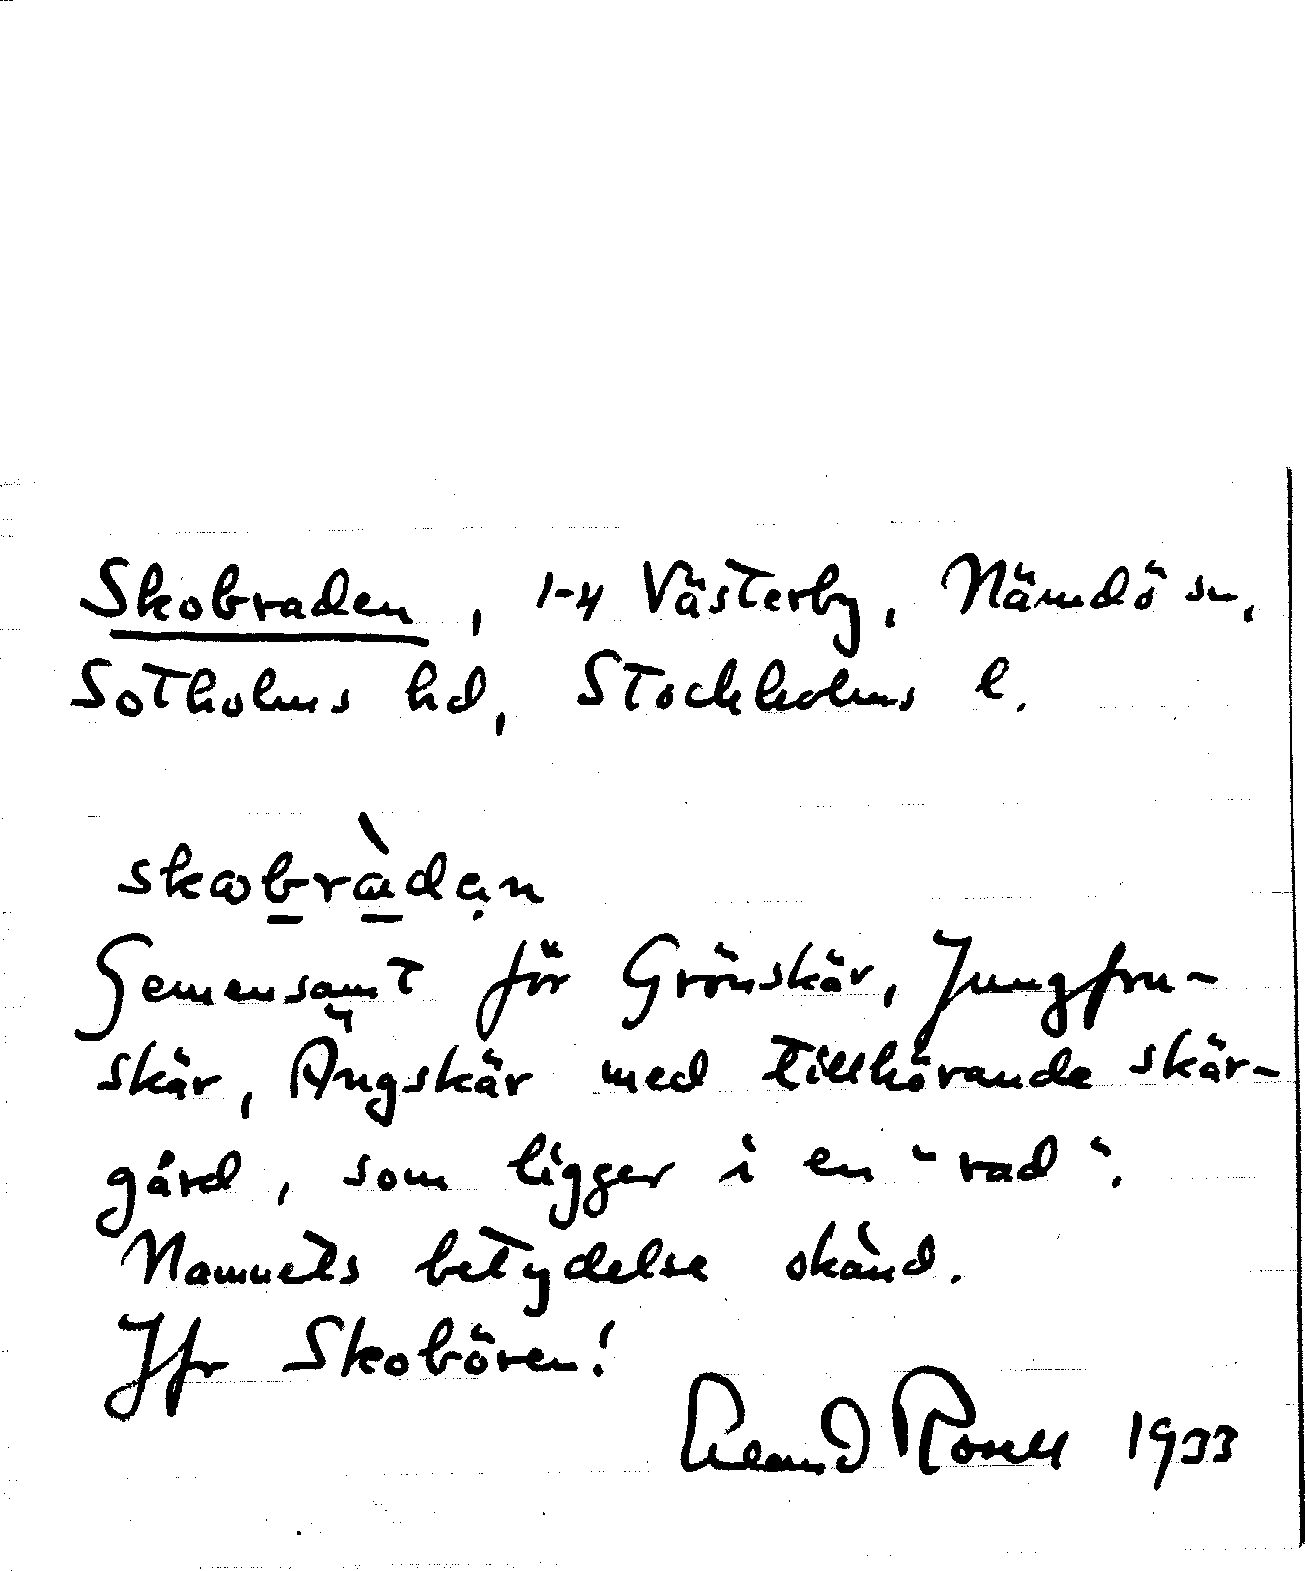 Skobraden, 1-4 Västerby, Nämdö sn,
Sotholms hd, Stockholms l.
skobràdạn
Gemensamt för Grönskär, Jungfru-
skär, Ängskär med tillhörande skär-
gård, som ligger i en "rad".
Namnets betydelse okänd.
Jfr Skobören!
1933